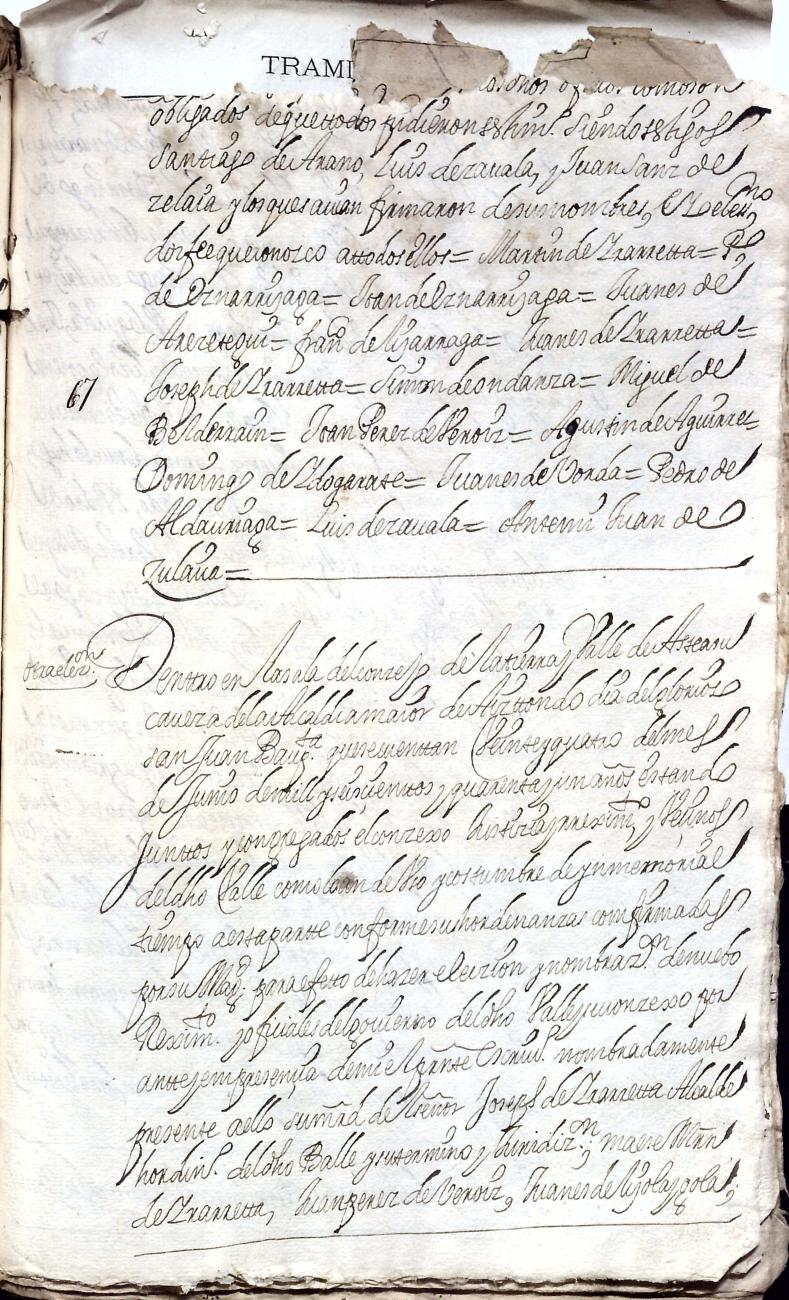 TRAMI
dhos ofiçios como son
obligados de que todos pidieron testim.º siendo testigos
Santiago de Arano, Luis de zavala, y Juan sanz de
zelaia y los que savian firmaron de sus nombres, E yo el essno
doi fee que conosco a ttodos ellos = Martin de Yrarretta = P.º
de Oznarrijaga = Joan de Oznarrijaga = Juanes de
Arezetegui = fran.co de liçarraga = Juanes de Yrarretta =
Joseph de Yrarretta = Simon de ondarza = Miguel de
67
Belderrain = Joan Perez de Veroiz = Agustin de Aguirre =
Domingo de Ydogarate = Juanes de Vorda = Pedro de
Aldauriaga = Luis de zavala = Antemi Juan de
zulava =
otra elez.on
Denttro en la sala del conzejo de la tierra y Valle de Asteasu
caveza de la Alcaldia maior de Aiztondo dia del glorioso
san Juan Baup.ta que se cuenttan Veinte y quatro del mes
de Junio de mill y seiscientos y quarenta y un años estando
Junttos y congregados el conzexo Justicia y rreximi.to y Vecinos
del dho Valle como lo an de Vso y costumbre de ynmemorial
tiempo a esta partte conforme sus hordenanzas comfirmadas
por su Mag.d para efetto de hazer elecçion y nombraz.on de nuebo
Rexim.to y oficiales del govierno del dho Valle y su conzexo por
antte y em presençia de mi el pressente Escriu.º nombradamente
presente a ello su mrd del señor Joseph de Yrarretta Alcalde
hordin.º del dho Balle y su termino y Juridiz.on, maese Mrn
de Yrarretta, Juan perez de Veroiz, Juanes de